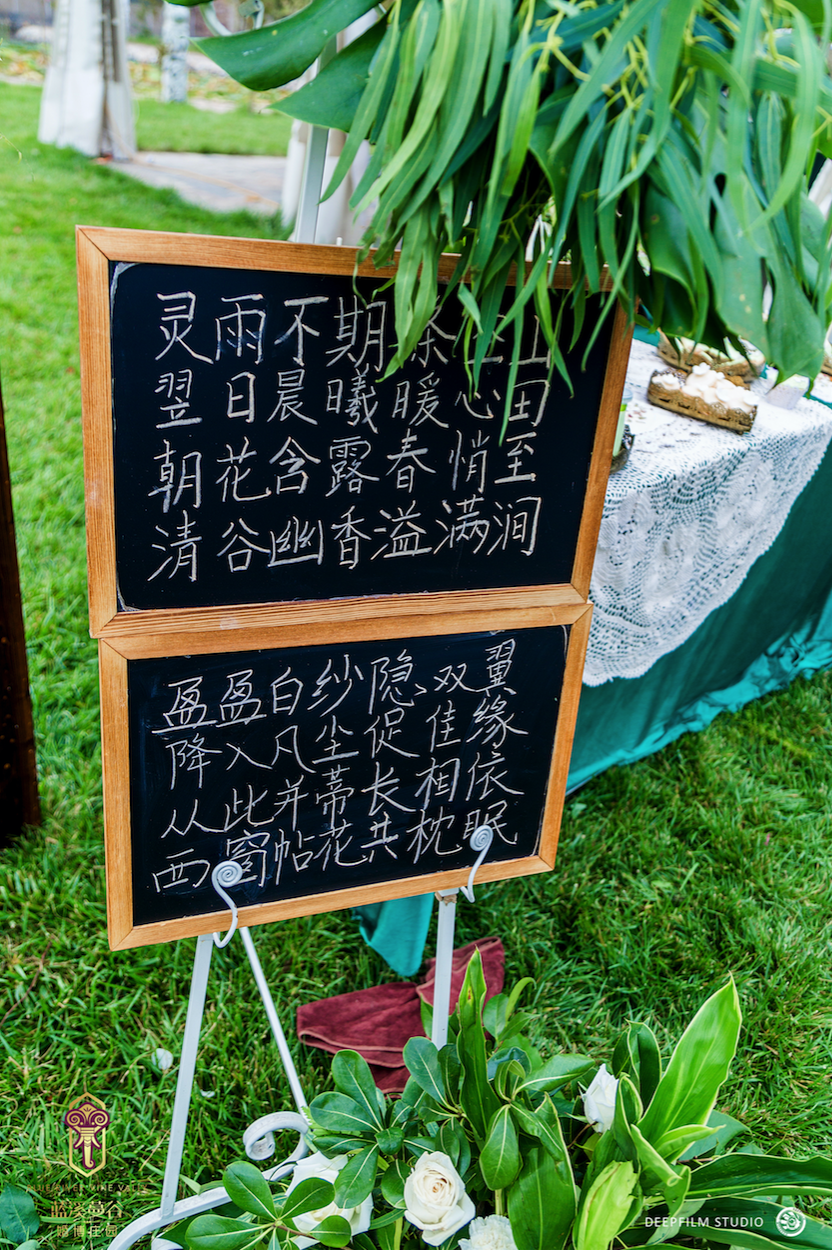 灵雨不期
翌日晨曦暖心田
朝花含露春悄至
清谷幽香溢满涧
盈盈白纱隐双翼
降入凡尘促佳缘
从此并蒂长相依
西窗帖花共枕眠
DEEPFILM STUDIO